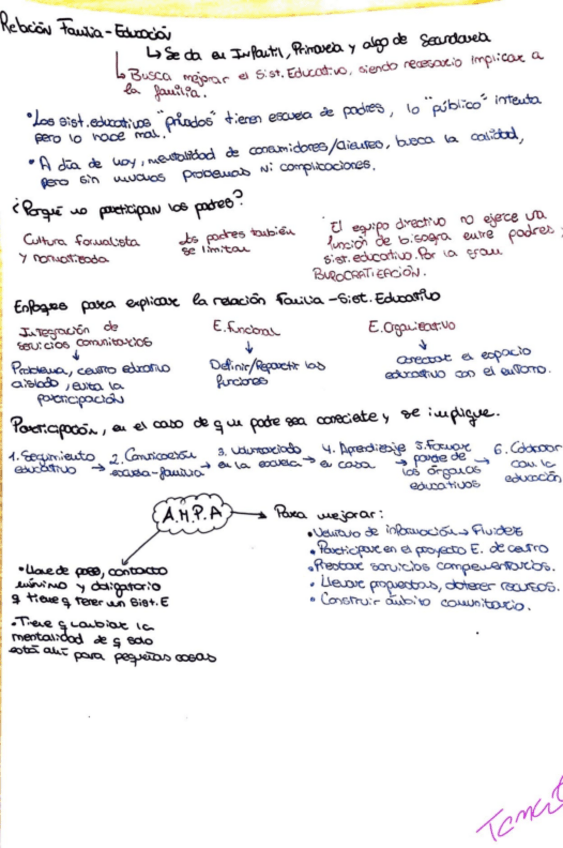 Relación Familia-Educación
↳ Se da en Infantil, Primaria y algo de Secundaria
↳ Busca mejorar el Sist. Educativo, siendo necesario implicar a
la familia.
• Los sist. educativos "privados" tienen escuela de padres, lo "público" intenta
pero lo hace mal.
• A día de hoy, mentalidad de consumidores/clientes, busca la calidad,
pero sin muchos problemas ni complicaciones.
¿Porqué no participan los padres?
Cultura formalista
y normativizada
Los padres también
se limitan
El equipo directivo no ejerce una
función de bisagra entre padres y
sist. educativo. Por la gran
BUROCRATIZACIÓN.
Enfoques para explicar la relación Familia-Sist. Educativo
Integración de
servicios comunitarios
↓
Problema, centro educativo
aislado, evita la
participación
E. Funcional
↓
Definir/Repartir las
funciones
E. Organizativo
↓
Conectar el espacio
educativo con el entorno.
Participación, en el caso de q un padre sea consciente y se implique.
1. Seguimiento
educativo →
2. Comunicación
escuela-familia →
3. Voluntariado
en la escuela →
4. Aprendizaje
en casa →
5. Formar
parte de
los órganos
educativos →
6. Colaborar
con la
educación
A.M.P.A → Para mejorar:
• Ventana de información → Fluidez
• Participar en el proyecto E. de centro
• Prestar servicios complementarios.
• Llevar propuestas, obtener recursos.
• Construir ámbito comunitario.
• Llave de paso, contacto
mínimo y obligatorio
q tiene q tener un Sist. E
• Tiene q cambiar la
mentalidad de q solo
está ahí para pequeñas cosas